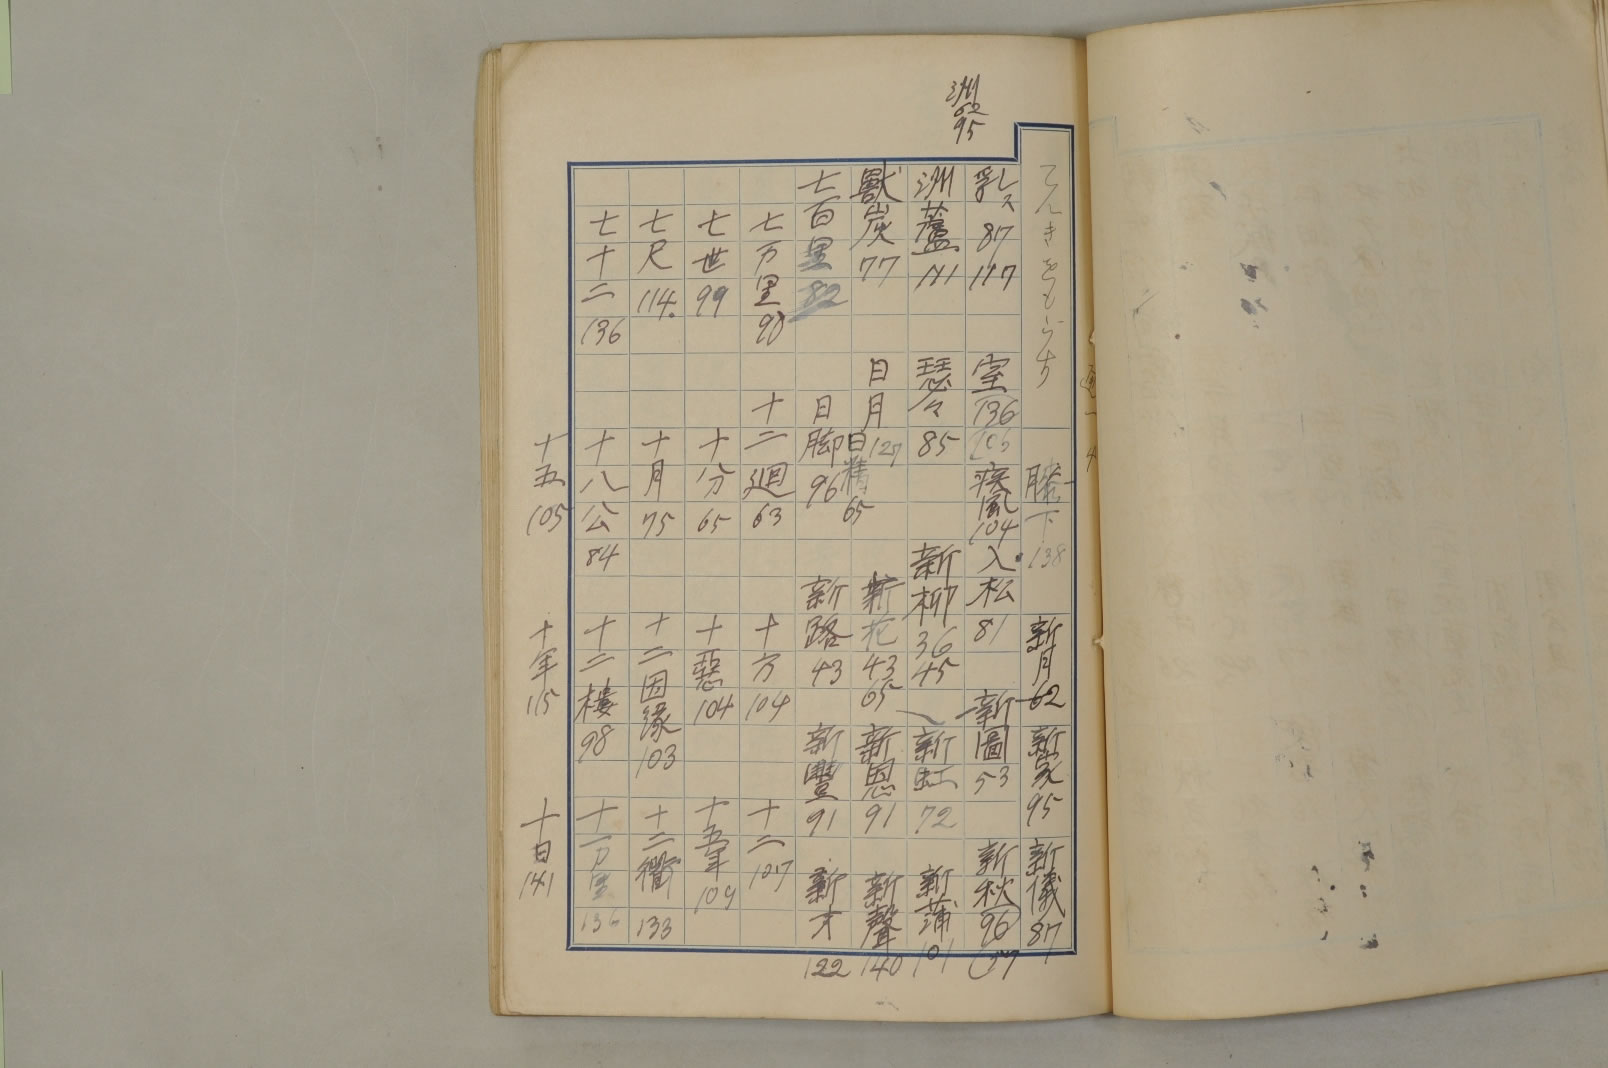 洲 62 95
膝下 138
新月 62
新家 95
新儀 87
乳 87 117
室 136
疾風 104
入松 81
新圖 53
新秋 96
洲蘆 111
瑟々 85
新柳 36 45
新虹 72
新蒲 101
獸炭 77
日月 127
日精 65
新花 43 65
新恩 91
新聲 140
七百里 82
日脚 96
新路 43
新豐 91
新才 122
七万里 90
十二廻 63
十方 104
十二 107
七世 99
十分 65
十惡 104
十五年 109
七尺 114.
十月 75
十二因緣 103
十二衢 133
七十二 136
十八公 84
十二樓 98
十一万里 136
十五 105
十年 115
十日 141